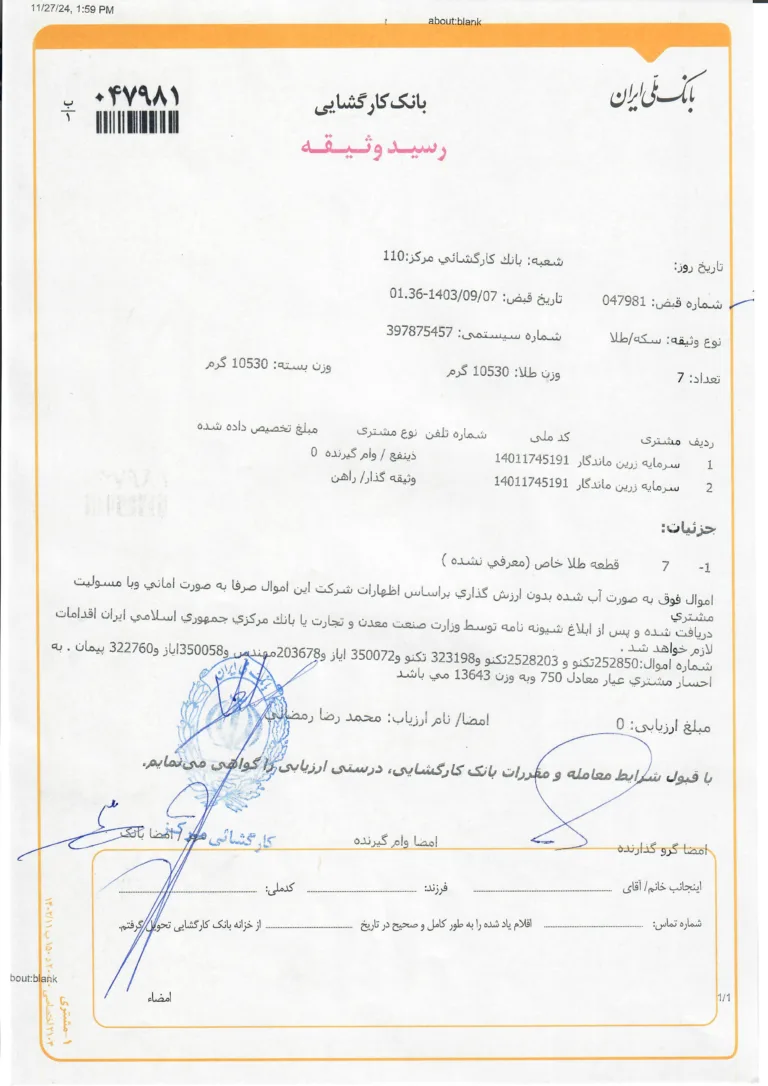 11/27/24, 1:59 PM
about:blank
بانک ملّی ایران
بانک کارگشایی
رسید وثیقه
۰۴۷۹۸۱
ب
۱
تاریخ روز:
شعبه: بانك كارگشائي مركز:110
شماره قبض: 047981
تاریخ قبض: 1403/09/07-01.36
نوع وثیقه: سكه/طلا
شماره سیستمی: 397875457
تعداد: 7
وزن طلا: 10530 گرم
وزن بسته: 10530 گرم
ردیف مشتری کد ملی شماره تلفن نوع مشتری مبلغ تخصیص داده شده
1 سرمایه زرین ماندگار 14011745191 ذینفع / وام گیرنده 0
2 سرمایه زرین ماندگار 14011745191 وثیقه گذار/ راهن
جزئیات:
1- 7 قطعه طلا خاص (معرفي نشده )
اموال فوق به صورت آب شده بدون ارزش گذاري براساس اظهارات شركت اين اموال صرفا به صورت اماني وبا مسوليت
مشتري
دريافت شده و پس از ابلاغ شيونه نامه توسط وزارت صنعت معدن و تجارت يا بانك مركزي جمهوري اسلامي ايران اقدامات
لازم خواهد شد .
شماره اموال:252850تكنو و 2528203تكنو و323198 تكنو و350072 اياز و203678مهندس و350058اياز و322760 پيمان . به
احسار مشتري عيار معادل 750 وبه وزن 13643 مي باشد
مبلغ ارزیابی: 0
امضا/ نام ارزیاب: محمد رضا رمضاني
بانک ملی ایران
با قبول شرایط معامله و مقررات بانک کارگشایی، درستی ارزیابی را گواهی می‌نمایم.
امضا گرو گذارنده
امضا وام گیرنده
امضا بانک
کارگشائی مرکز
اینجانب خانم/ آقای فرزند: کدملی:
شماره تماس: اقلام یاد شده را به طور کامل و صحیح در تاریخ از خزانه بانک کارگشایی تحویل گرفتم.
امضاء
bout:blank
1/1
۱-مشتری